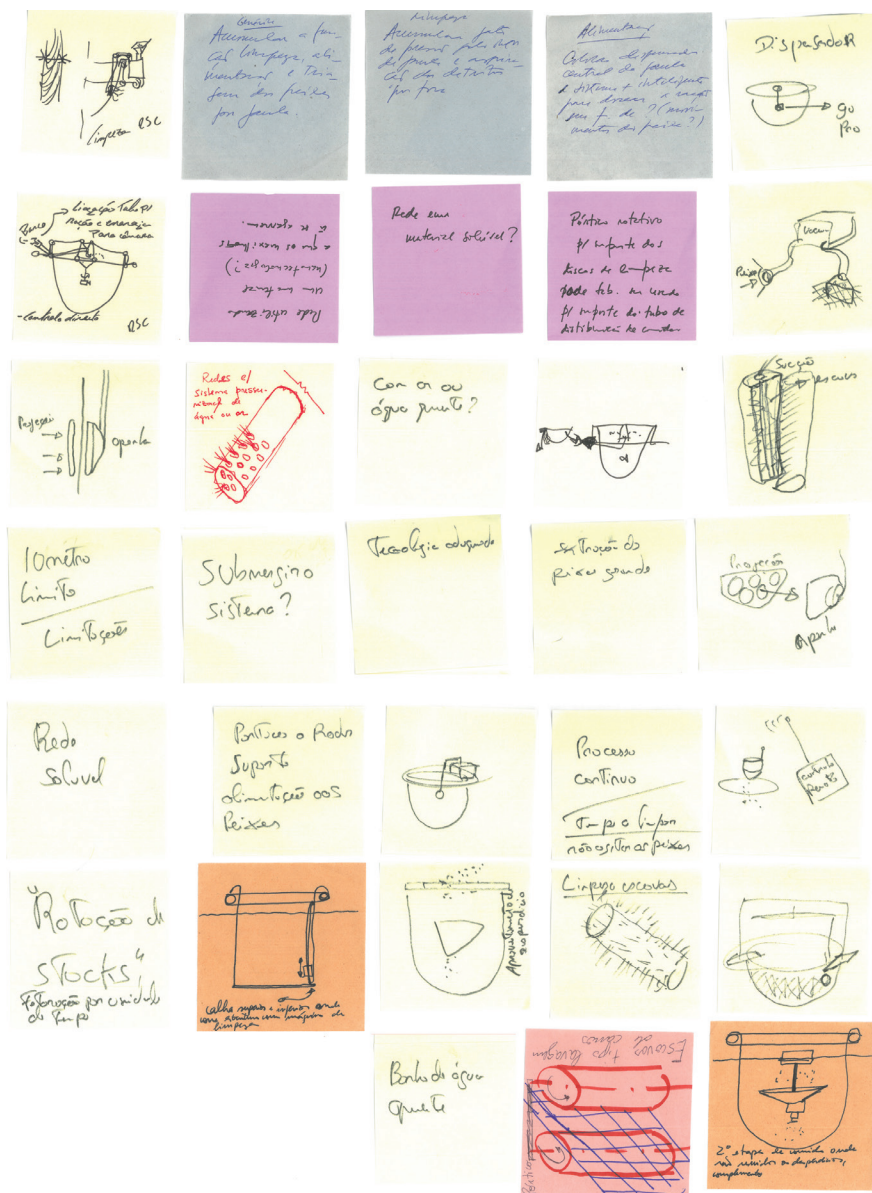 Limpeza RSC
Genérico
Acumular a fun-
ção limpeza, ali-
mentar e tria-
gem dos peixes
por jaula.
Limpeza
Acumular jato
de
dos detritos
por fora
Alimentação
Colocar dispensador
central da jaula
e sistema + inteligente
para dosear a ração
em f. de? (movi-
mentos dos peixes?)
Dispensador
go
Pro
Ligação Tubo p/
ração e energia
Para câmara
Barco
- Controlo directo
RSC
Rede utilizando
um material
(nanotecnologia?)
a que os mexilhões
ñ se agarrem.
Rede em
material solúvel?
Pórtico rotativo
p/ suporte dos
discos de limpeza
pode tb. ser usado
p/ suporte do tubo de
distribuição de comida
Vacum
Peixe
Projeção
apanha
Redes c/
sistema pressu-
rizado de
água ou ar
Com ar ou
água quente?
Sucção
escovas
10 metro
Limite
Limitações
Submergir o
sistema?
Tecnologia adequada
extração do
peixe grande
Projeção
Apanha
Rede
Soluvel
Porticos o Rodar
Suporta
alimentação aos
Peixes
Processo
continuo
Tempo a limpar
não as peixes
controlo
Remoto
"Rotação de
stocks"
por unidade
de tempo
calha superior e inferior onde
uma máquina de
limpeza
Aproveitamento do
desperdício
Limpeza escovas
Banho de água
quente
Escovas tipo lavagem
de carros
Pórtico
2ª etapa de comida onde
são reunidos os desperdícios,
complemento